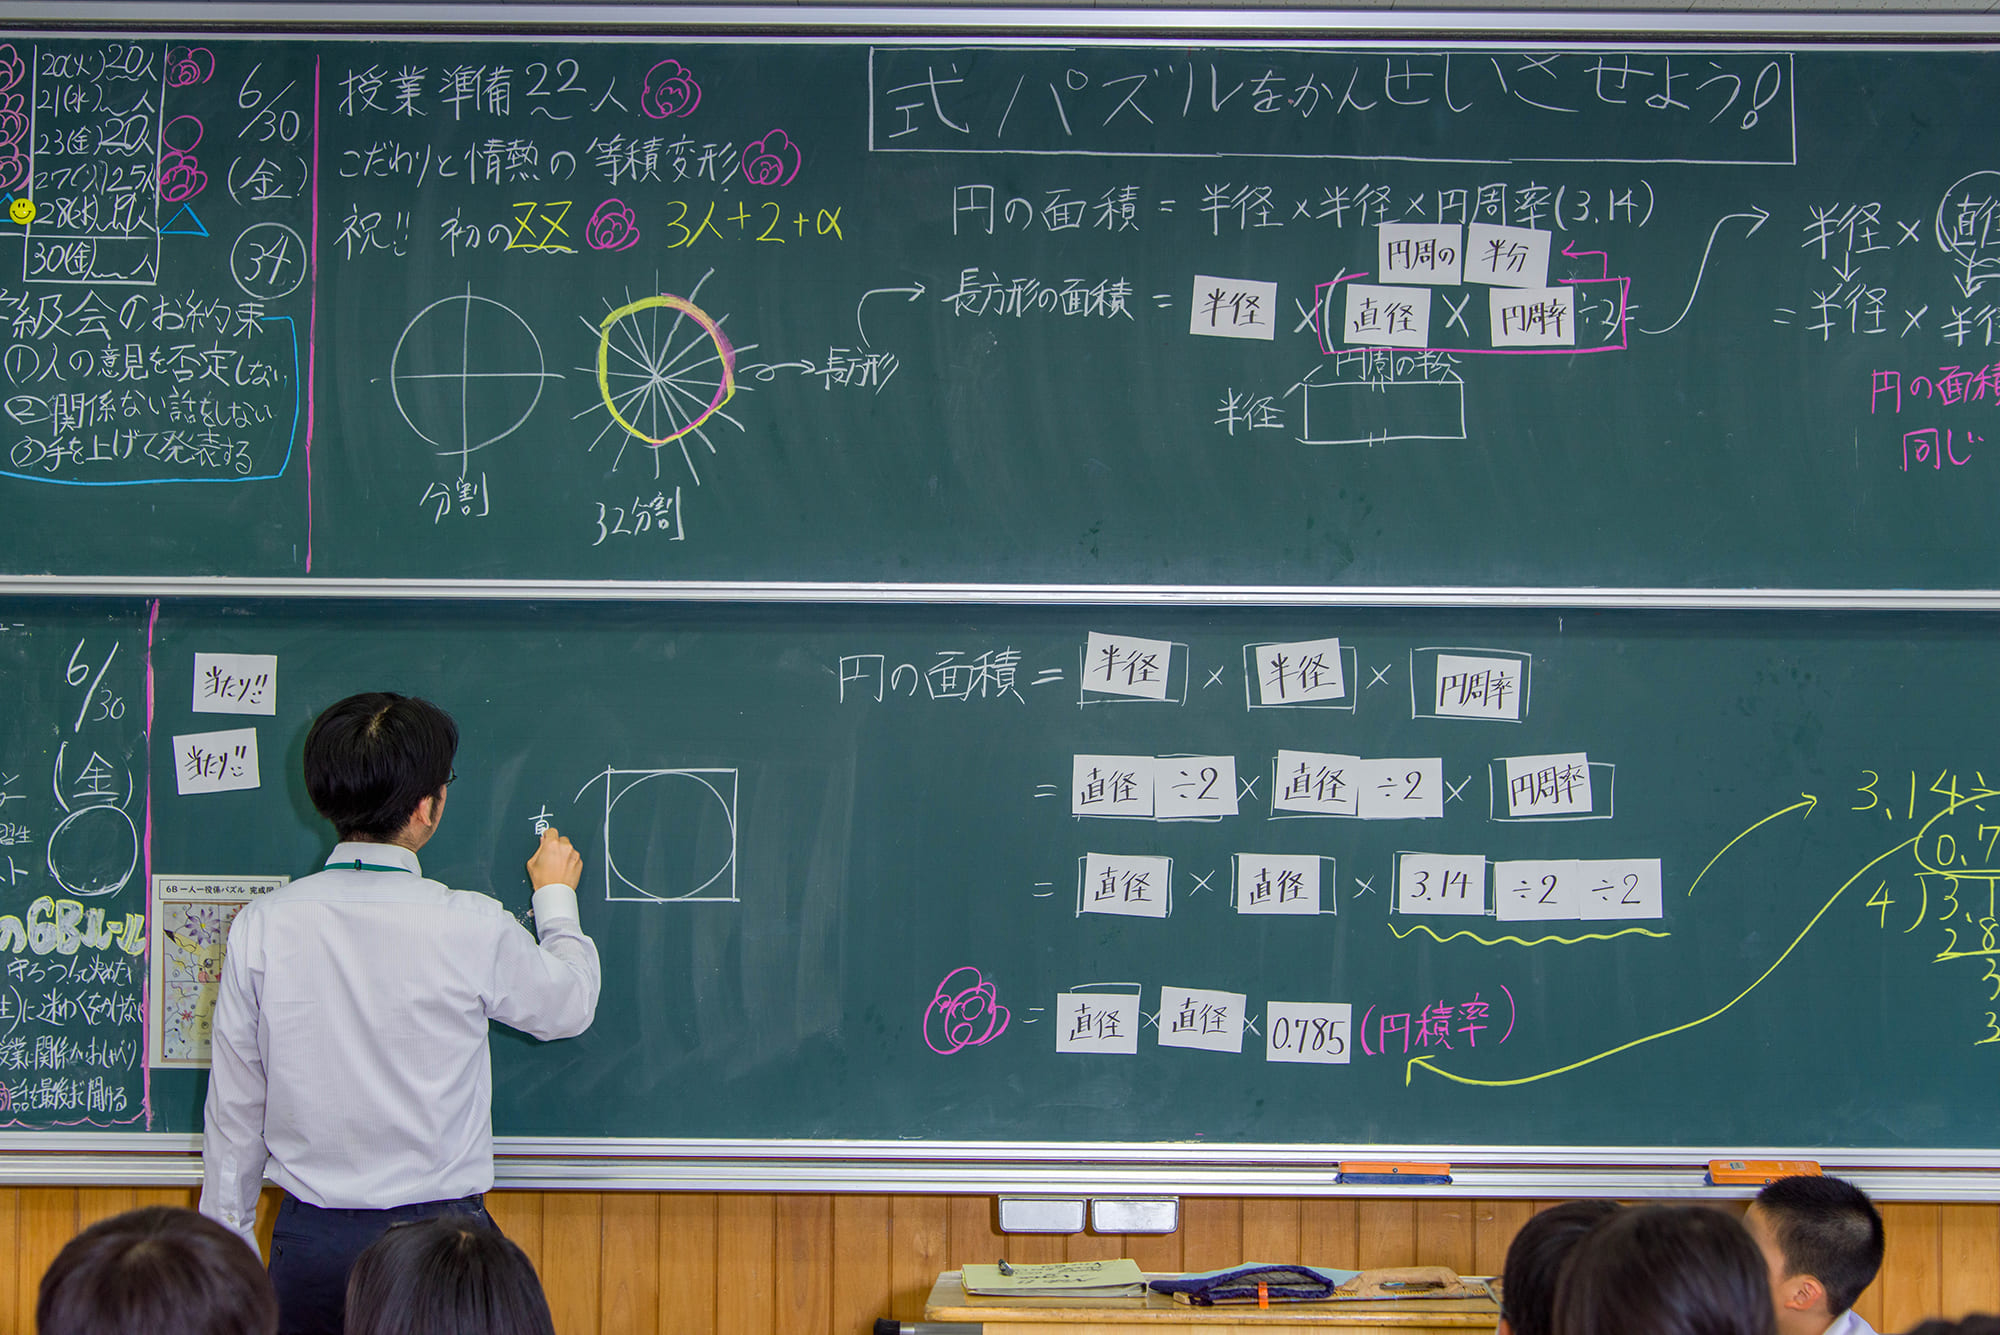 20(火)20人
21(水) 人
23(金)20人
28(水)
30(金) 人
学級会のお約束
①人の意見を否定しない
②関係ない話をしない
③手を上げて発表する
6/30
(金)
34
授業準備22人
こだわりと情熱の等積変形
祝!! 初のZZ 3人+2+α
分割
32分割
長方形
式パズルをかんせいさせよう!
円の面積=半径×半径×円周率(3.14)
円周の 半分
長方形の面積=半径×(直径×円周率÷2)=
円周の半分
半径
半径×(直径
=半径×半径
円の面積
同じ
6/30
(金)
6Bルール
守ろうって決めた
に迷わくをかけない
授業に関係ないおしゃべり
話を最後まで聞ける
当たり!!
当たり!!
6B 一人一役係パズル 完成図
直
円の面積=半径×半径×円周率
=直径÷2×直径÷2×円周率
=直径×直径×3.14÷2÷2
=直径×直径×0.785(円積率)
3.14÷
0.7
4)3.1
28
3
3